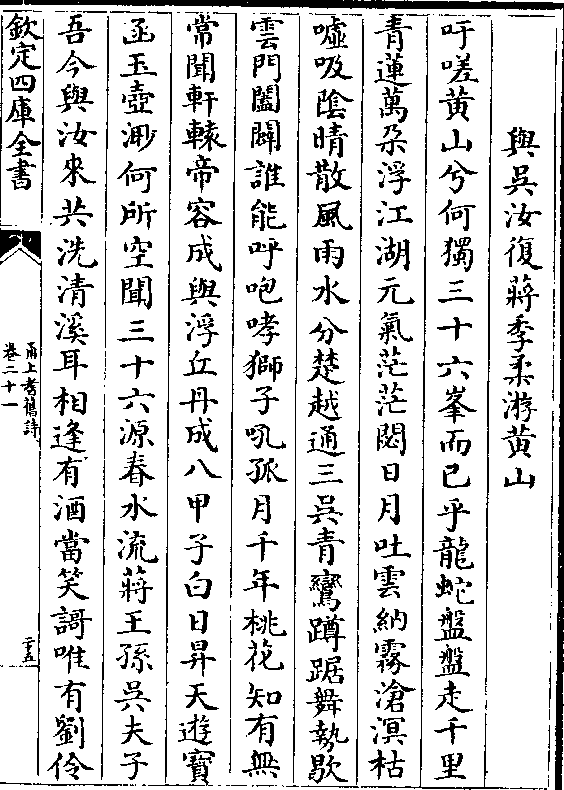 與吳汝復蔣季柔游黄山
吁嗟黄山兮何獨三十六峯而已乎龍蛇盤盤走千里
青蓮萬朶浮江湖元氣茫茫閟日月吐雲納霧滄溟枯
噓吸陰晴散風雨水分楚越通三吳青鸞蹲踞舞勢歇
雲門闔闢誰能呼咆哮獅子吼孤月千年桃花知有無
常聞軒轅帝容成與浮丘丹成八甲子白日昇天遊寳
函玉壺渺何所空聞三十六源春水流蔣王孫吳夫子
吾今與汝来共洗清溪耳相逢有酒當笑謌唯有劉伶
欽定四庫全書
甬上耆舊詩
卷二十一
二十五